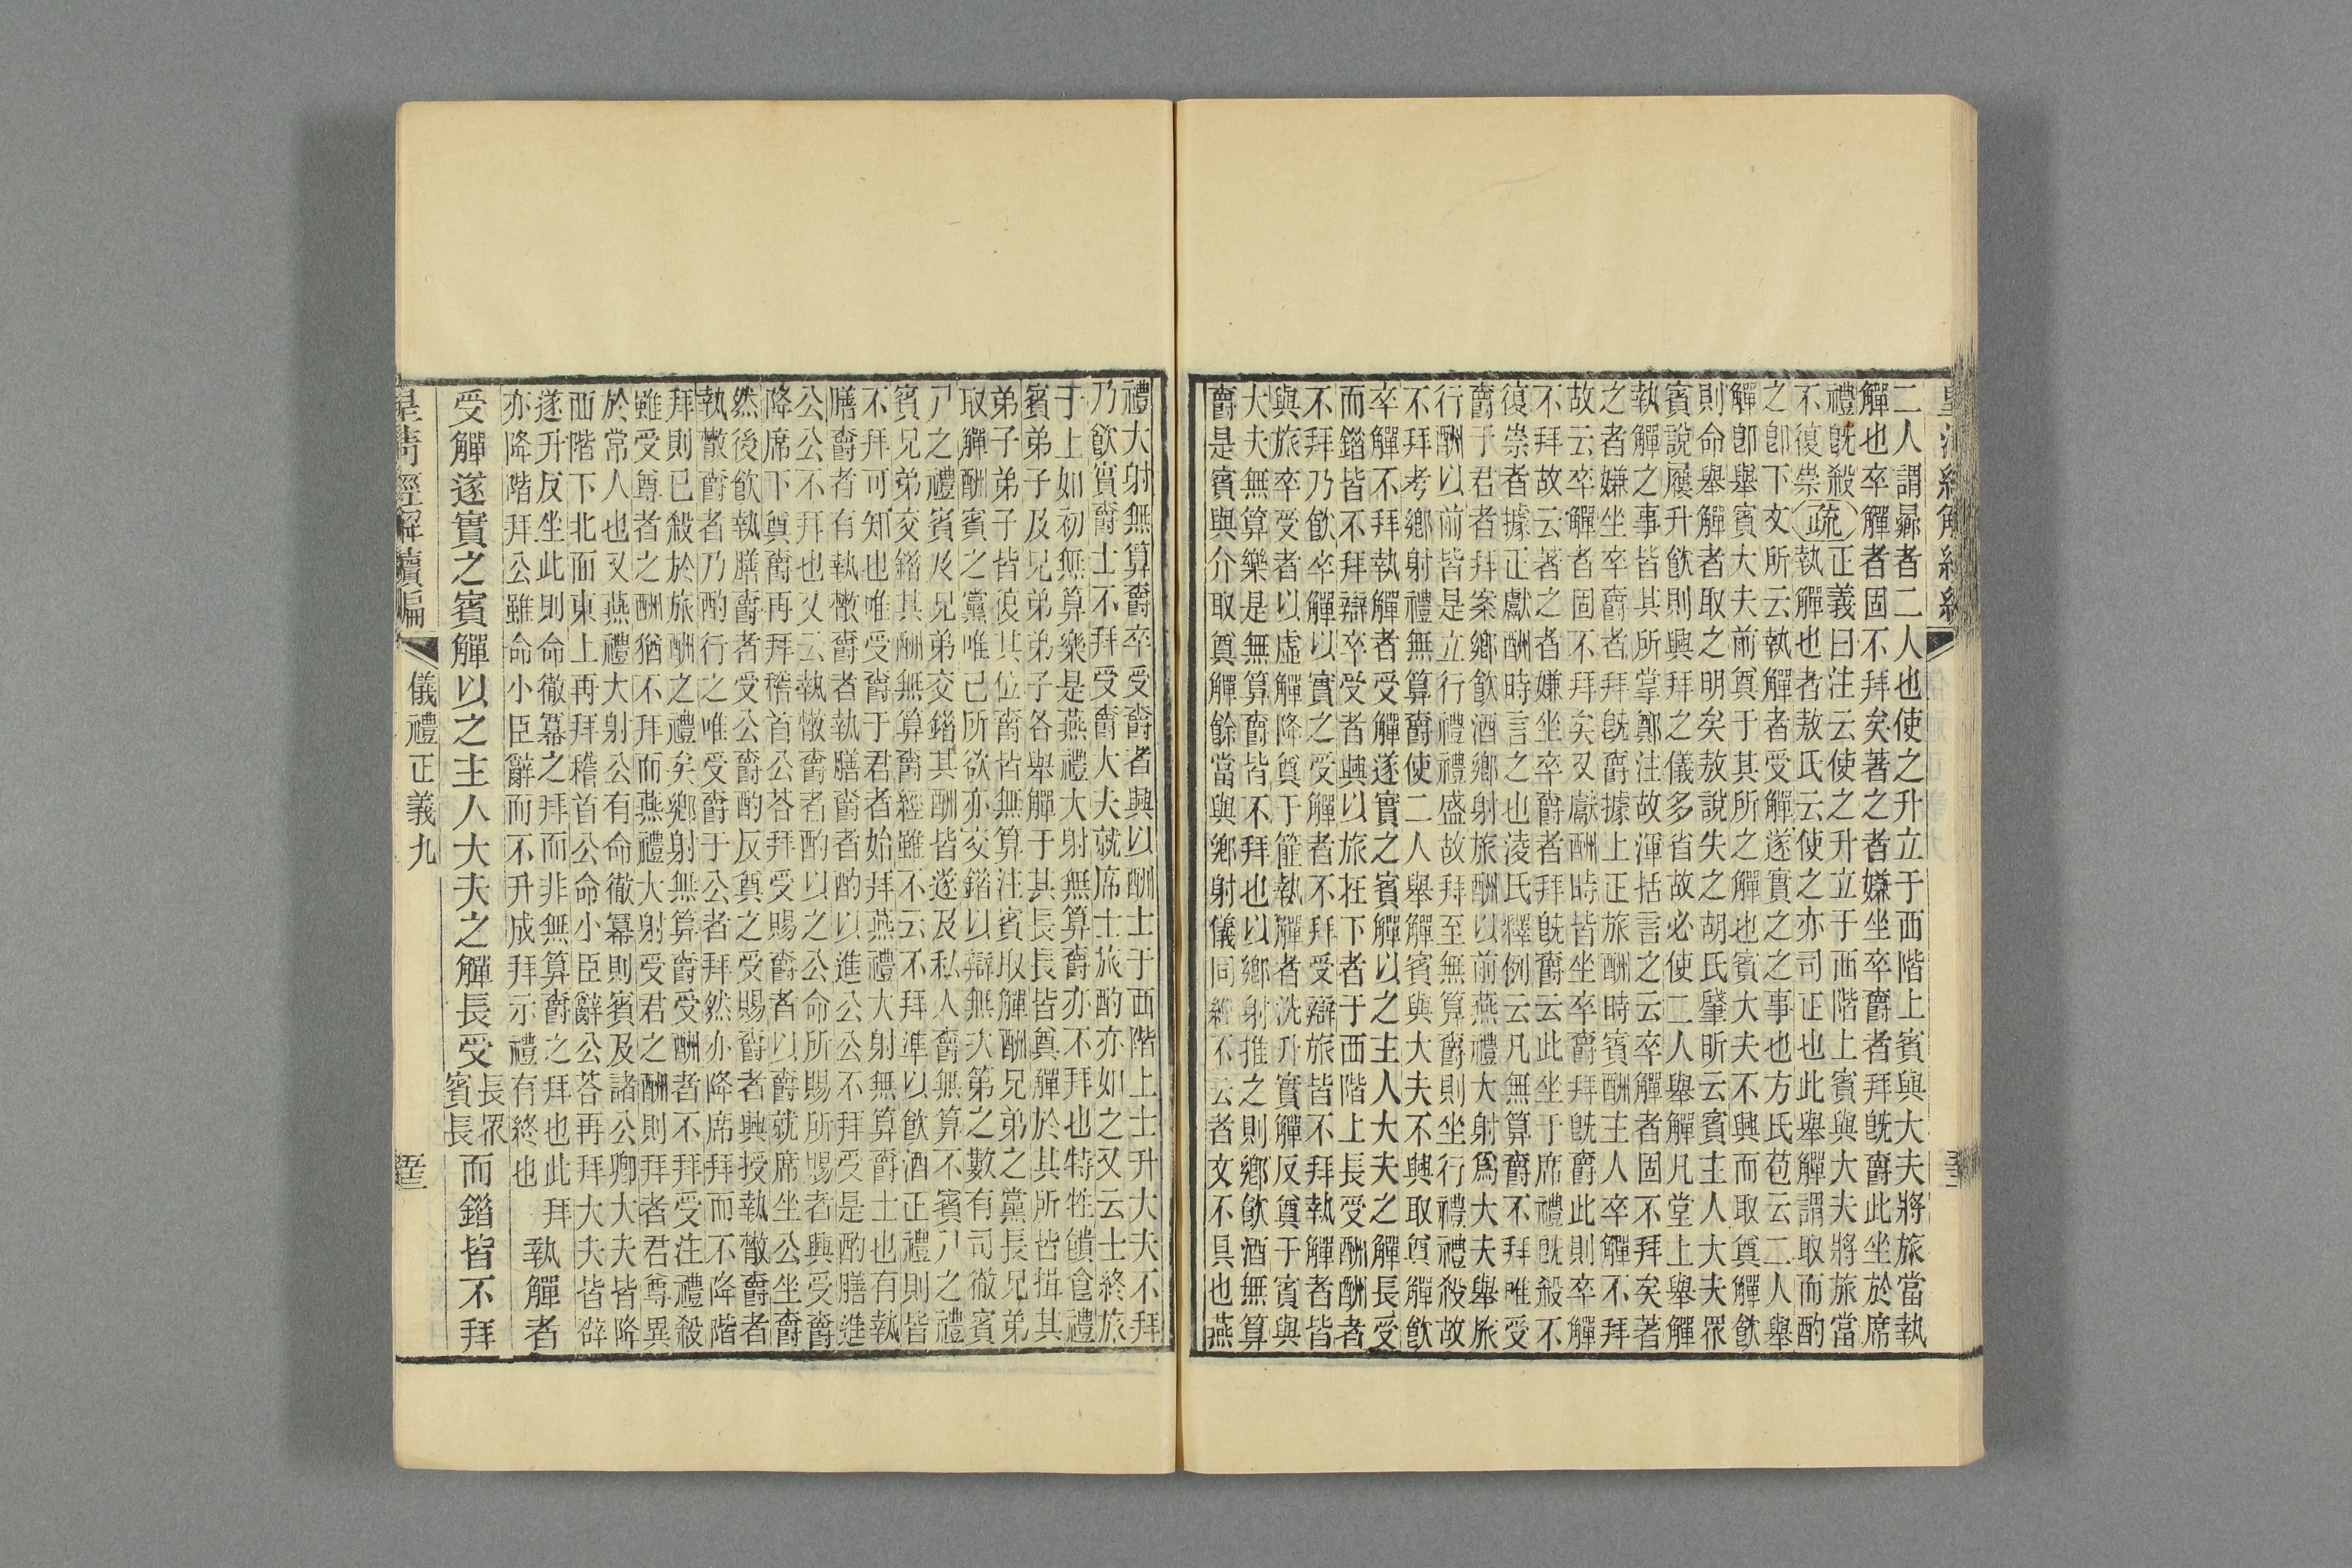 二人謂曏者二人也使之升立于西階上賓與大夫將旅當執
觶也卒觶者固不拜矣著之者嫌坐卒爵者拜旣爵此坐於席
禮旣殺疏正義曰注云使之升立于西階上賓與大夫將旅當
不復崇執觶也者敖氏云使之亦司正也此舉觶謂取而酌
之卽下文所云執觶者受觶遂實之之事也方氏苞云二人舉
觶卽舉賓大夫前奠于其所之觶也賓大夫不興而取奠觶飮
則命舉觶者取之明矣敖說失之胡氏肇昕云賓主人大夫罛
賓說屨升飮則興拜之儀多省故必使二人舉觶凡堂上舉觶
執觶之事皆其所掌鄭注故渾括言之云卒觶者固不拜矣著
之者嫌坐卒爵者拜旣爵據上正旅酬時賓酬主人卒觶不拜
故云卒觶者固不拜矣又獻酬時皆坐卒爵拜旣爵此則卒觶
不拜故云著之者嫌坐卒爵者拜旣爵云此坐于席禮旣殺不
復崇者據正獻酬時言之也淩氏釋例云凡無算爵不拜唯受
爵于君者拜案鄉飮酒鄉射旅酬以前燕禮大射爲大夫舉旅
行酬以前皆是立行禮禮盛故拜至無算爵則坐行禮禮殺故
不拜考鄉射禮無算爵使二人舉觶賓與大夫不興取奠觶飮
卒觶不拜執觶者受觶遂實之賓觶以之主人大夫之觶長受
而錯皆不拜辯卒受者興以旅在下者于西階上長受酬酬者
不拜乃飮卒觶以實之受觶者不拜受辯旅皆不拜執觶者皆
與旅卒受者以虛觶降奠于篚執觶者洗升實觶反奠于賓與
大夫無算樂是無算爵皆不拜也以鄉射推之則鄉飮酒無算
爵是賓與介取奠觶餘當與鄉射儀同經不云者文不具也燕
禮大射無算爵卒受爵者興以酬士于西階上士升大夫不拜
乃飮實爵士不拜受爵大夫就席士旅酌亦如之又云士終旅
于上如初無算樂是燕禮大射無算爵亦不拜也特牲饋食禮
賓弟子及兄弟弟子各舉觶于其長長皆奠觶於其所皆揖其
弟子弟子皆復其位爵皆無算注賓取觶酬兄弟之黨長兄弟
取觶酬賓之黨唯己所欲亦交錯以辯無次第之數有司徹賓
尸之禮賓及兄弟交錯其酬皆遂及私人爵無算不賓尸之禮
賓兄弟交錯其酬無算爵經雖不云不拜準以飮酒正禮則皆
不拜可知也唯受爵于君者始拜燕禮大射無算爵士也有執
膳爵者有執散爵者執膳爵者酌以進公公不拜受是酌膳進
公公不拜也又云執散爵者酌以之公命所賜所賜者興受爵
降席下奠爵再拜稽首公荅拜受賜爵者以爵就席坐公坐爵
然後飮執膳爵者受公爵酌反奠之受賜爵者興授執散爵者
執散爵者乃酌行之唯受爵于公者拜然亦降席拜而不降階
拜則已殺於旅酬之禮矣鄉射無算爵受酬者不拜受注禮殺
雖受尊者之酬猶不拜而燕禮大射受君之酬則拜者君尊異
於常人也又燕禮大射公有命徹冪則賓及諸公卿大夫皆降
西階下北面東上再拜稽首公命小臣辭公荅再拜大夫皆辟
遂升反坐此則命徹冪之拜而非無算爵之拜也此拜
亦降階拜公雖命小臣辭而不升成拜示禮有終也執觶者
受觶遂實之賓觶以之主人大夫之觶長受長罛賓長而錯皆不拜
儀禮正義九